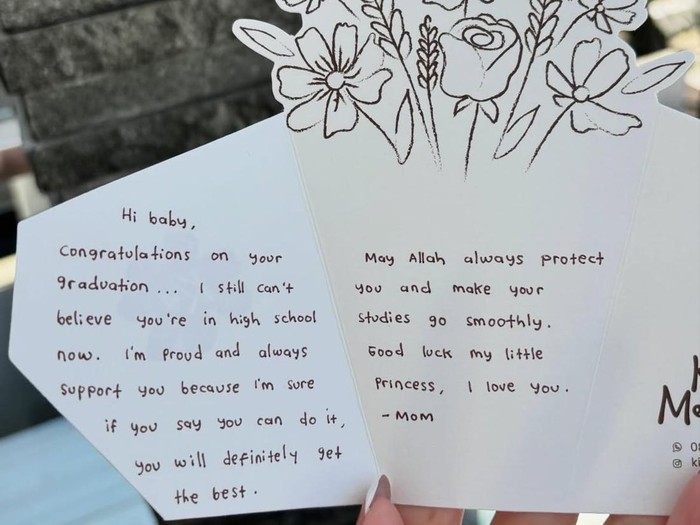 Hi baby,
Congratulations on your
graduation... I still can't
believe you're in high school
now. I'm proud and always
support you because I'm sure
if you say you can do it,
you will definitely get
the best.
May Allah always protect
you and make your
studies go smoothly.
Good luck my little
princess, I love you.
- Mom